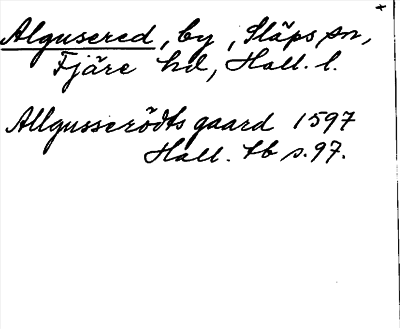 Algusered, by, Släps sn,
Fjäre hd, Hall. l.
Allgusserödts gaard 1597
Hall. tb s. 97.